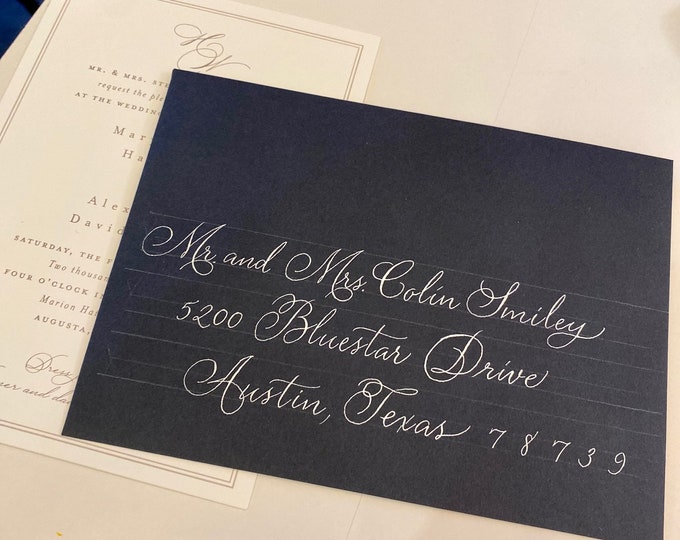 H
W
MR. & MRS.
request the
AT THE WEDDING
Mar
Ha
Alex
David
SATURDAY, THE F
Two thousand
FOUR O'CLOCK IN
Marion Ha
AUGUSTA,
Dress
and
Mr. and Mrs. Colin Smiley
5200 Bluestar Drive
Austin, Texas 78739